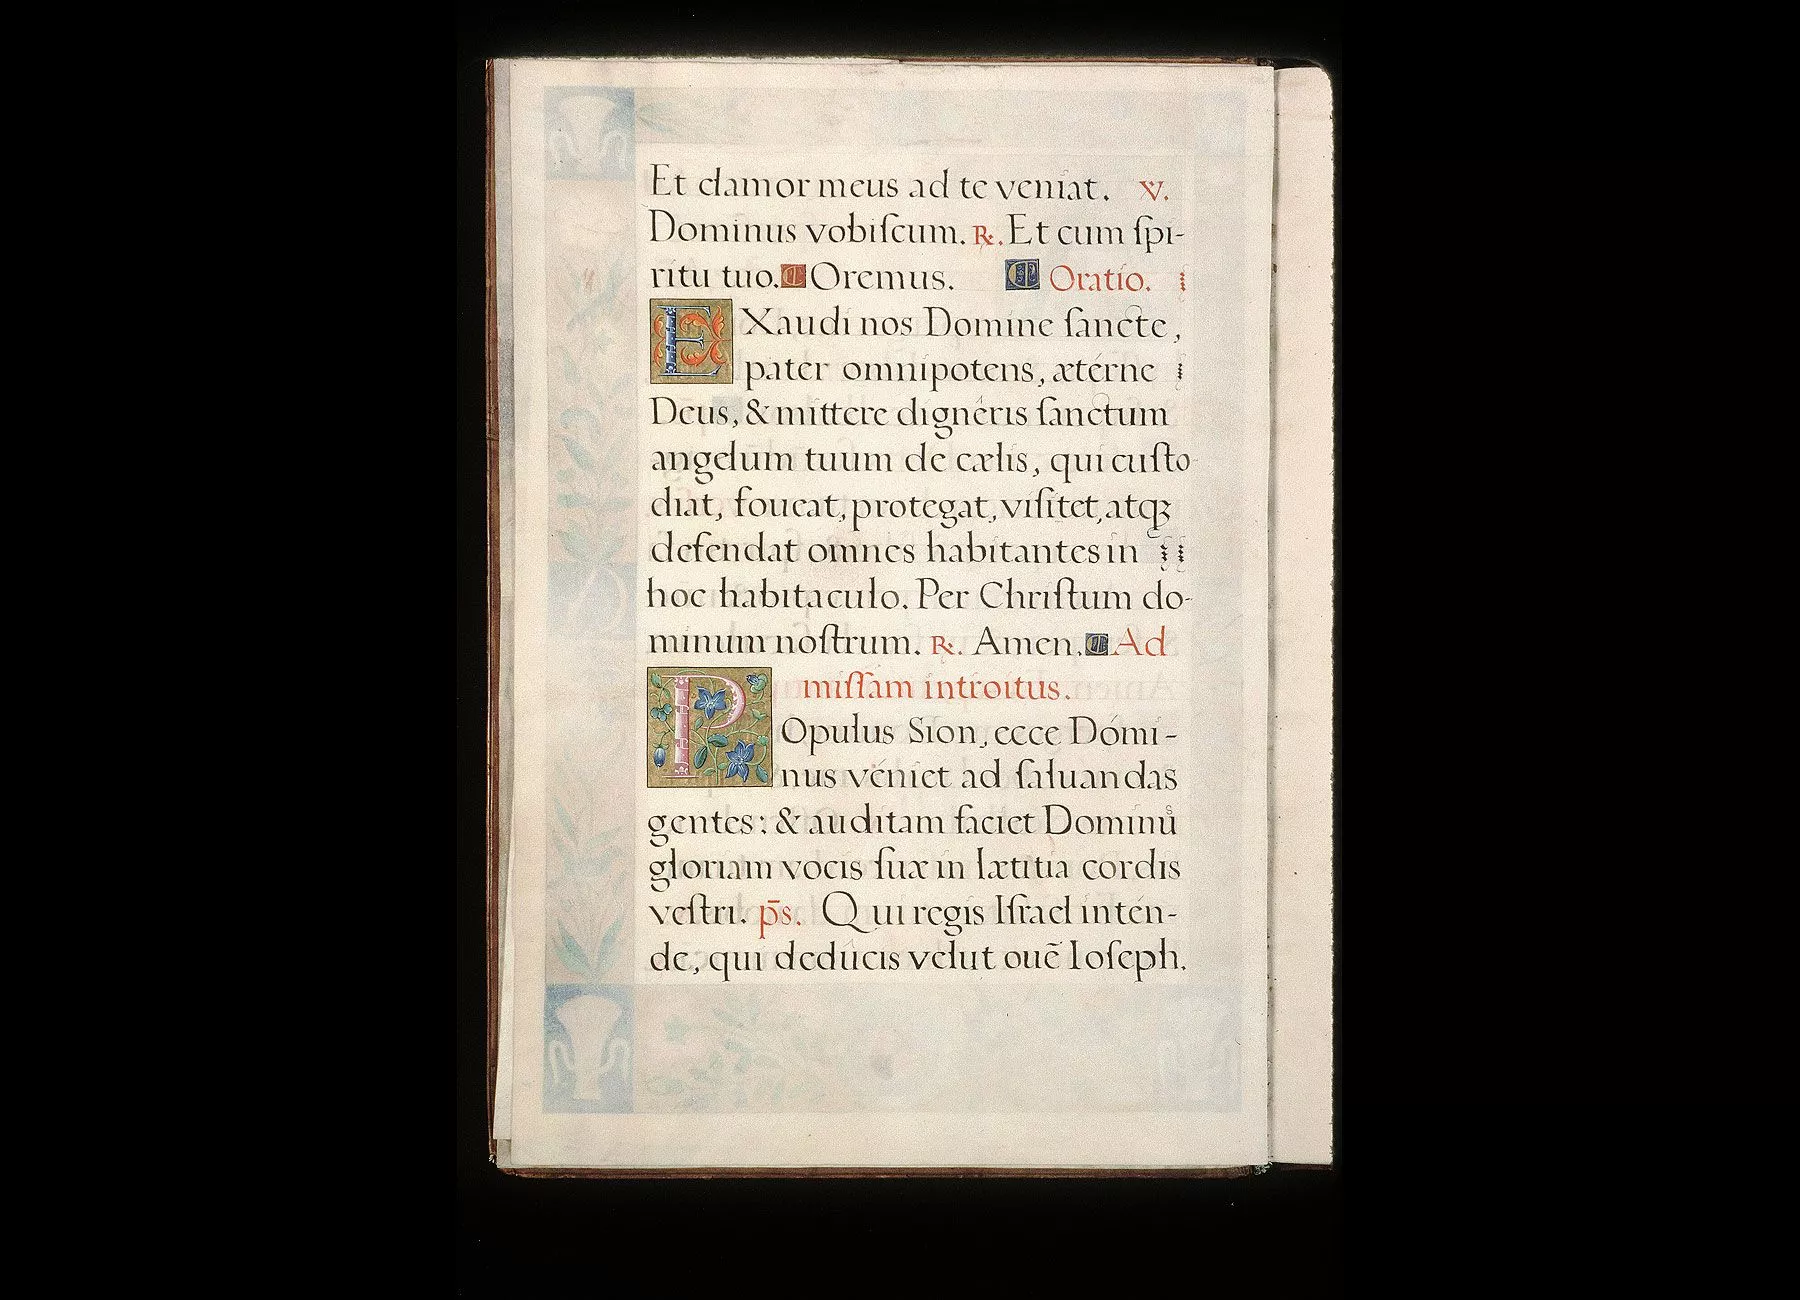 Et clamor meus ad te veniat. ℣.
Dominus vobiſcum. ℟. Et cum ſpi-
ritu tuo. Oremus. Oratio.
EXaudi nos Domine ſancte,
pater omnipotens, ætérne
Deus, & mittere dignêris ſanctum
angelum tuum de cælis, qui cuſto-
diat, foueat, protegat, viſitet, atqꝫ
defendat omnes habitantes in
hoc habitaculo. Per Chriſtum do-
minum noſtrum. ℟. Amen. Ad
miſſam introitus.
POpulus Sion, ecce Dómi-
nus véniet ad ſaluandas
gentes: & auditam faciet Dominuˢ
gloriam vocis ſuæ in lætitia cordis
veſtri. p̄s. Qui regis Iſrael intén-
de, qui dedûcis velut ouē Ioſeph.